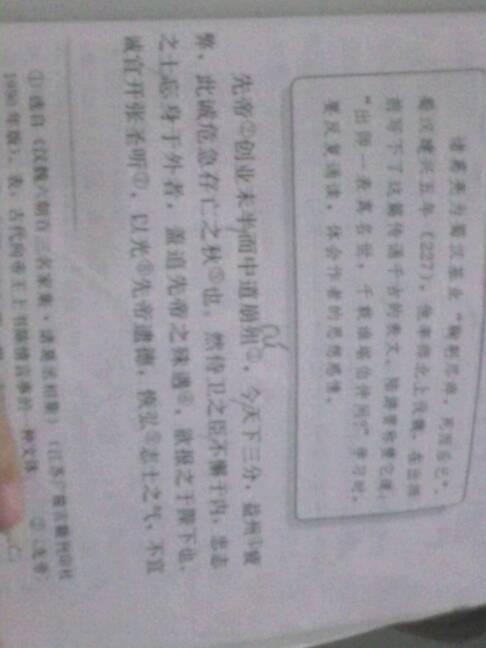 诸葛亮为蜀汉基业“鞠躬尽瘁，死而后已”。
蜀汉建兴五年（227），他率师北上伐魏，在出师
前写下了这篇传诵千古的表文。陆游曾称赞它道：
“出师一表真名世，千载谁堪伯仲间？”学习时，
要反复诵读，体会作者的思想感情。
先帝②创业未半而中道崩殂③，今天下三分，益州④疲
弊，此诚危急存亡之秋⑤也。然侍卫之臣不懈于内，忠志
之士忘身于外者，盖追先帝之殊遇⑥，欲报之于陛下也。
诚宜开张圣听⑦，以光⑧先帝遗德，恢弘⑨志士之气，不宜
①选自《汉魏六朝百三名家集·诸葛丞相集》（江苏广陵古籍刻印社
1990年版）。表，古代向帝王上书陈情言事的一种文体。②〔先帝